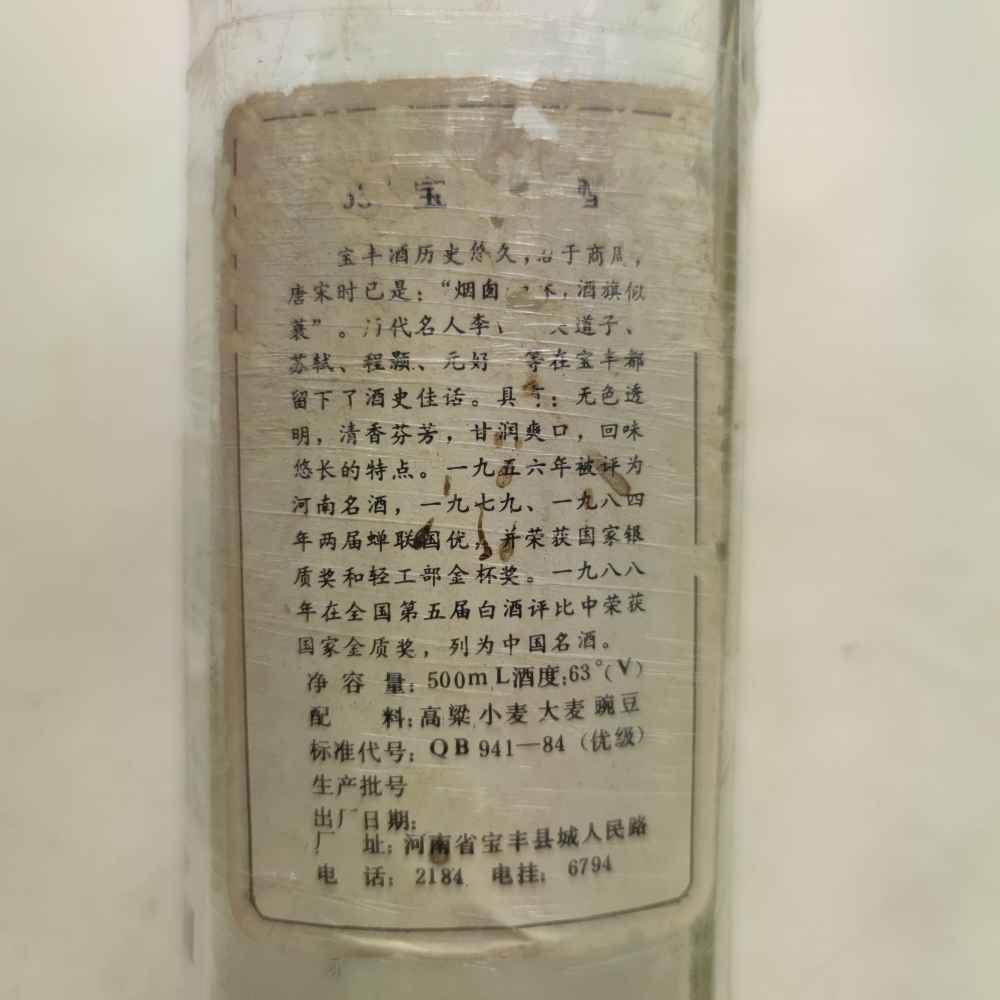 宝
宝丰酒历史悠久，于商周，
唐宋时已是：“烟囱，酒旗似
蓑”。代名人李道子、
苏轼、程颢、元好等在宝丰都
留下了酒史佳话。具：无色透
明，清香芬芳，甘润爽口，回味
悠长的特点。一九五六年被评为
河南名酒，一九七九、一九八四
年两届蝉联国优，并荣获国家银
质奖和轻工部金杯奖。一九八八
年在全国第五届白酒评比中荣获
国家金质奖，列为中国名酒。
净容量：500mL酒度：63°(V)
配料：高粱小麦大麦豌豆
标准代号：QB941—84（优级）
生产批号
出厂日期：
厂址：河南省宝丰县城人民路
电话：2184 电挂：6794